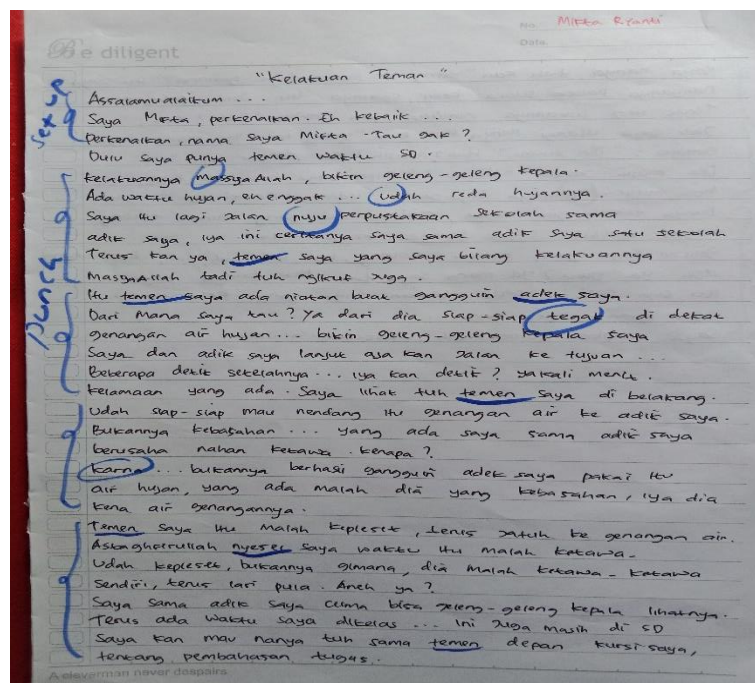 No. Mikta Ryanti
Be diligent
Date.
"Kelakuan Teman"
Set up
Assalamualaikum ...
Saya Mikta, perkenalkan. Eh kebalik ...
perkenalkan, nama saya Mikta - Tau gak?
Dulu saya punya temen waktu SD.
Kelakuannya massya Allah, bikin geleng-geleng kepala.
Ada waktu hujan, eh enggak ... udah reda hujannya.
Saya itu lagi jalan nuju perpustakaan sekolah sama
adik saya, iya ini ceritanya saya sama adik saya satu sekolah
Terus kan ya, temen saya yang saya bilang kelakuannya
Massya Allah tadi tuh ngikut juga.
Punch
Itu temen saya ada niatan buat gangguin adek saya.
Dari mana saya tau? Ya dari dia siap-siap tegak di dekat
genangan air hujan ... bikin geleng-geleng kepala saya
Saya dan adik saya lanjut aja kan jalan ke tujuan ...
Beberapa detik setelahnya ... iya kan detik? yakali menit.
kelamaan yang ada. Saya lihat tuh temen saya di belakang.
Udah siap-siap mau nendang itu genangan air ke adik saya.
Bukannya kebasahan ... yang ada saya sama adik saya
berusaha nahan ketawa. Kenapa?
Karna ... bukannya berhasi gangguin adek saya pakai itu
air hujan, yang ada malah dia yang kebasahan, iya dia
kena air genangannya.
Temen saya itu malah kepleset, terus jatuh ke genangan air.
Astaghfirullah nyesel saya waktu itu malah ketawa.
Udah kepleset, bukannya gimana, dia malah ketawa-ketawa
Sendiri, terus lari pula. Aneh ya?
Saya sama adik saya cuma bisa geleng-geleng kepala lihatnya.
Terus ada waktu saya dikelas ... ini juga masih di SD
Saya kan mau nanya tuh sama temen depan kursi saya,
tentang pembahasan tugas.
A cleverman never despairs